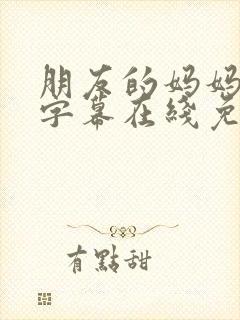 朋友的妈妈
字幕在綫免
有點甜